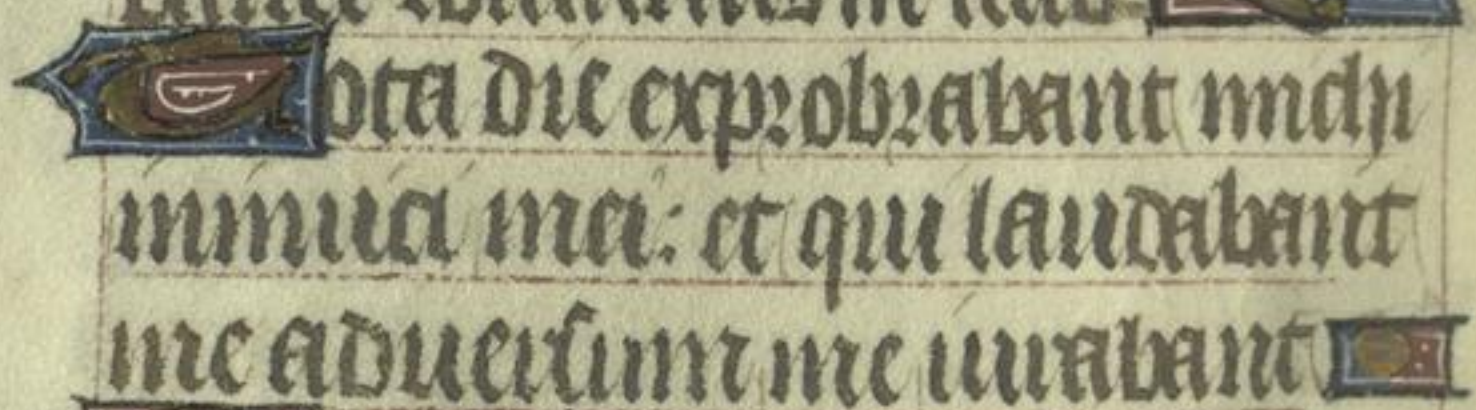 Tota die exprobrabant michi
inimici mei: et qui laudabant
me adversum me iurabant